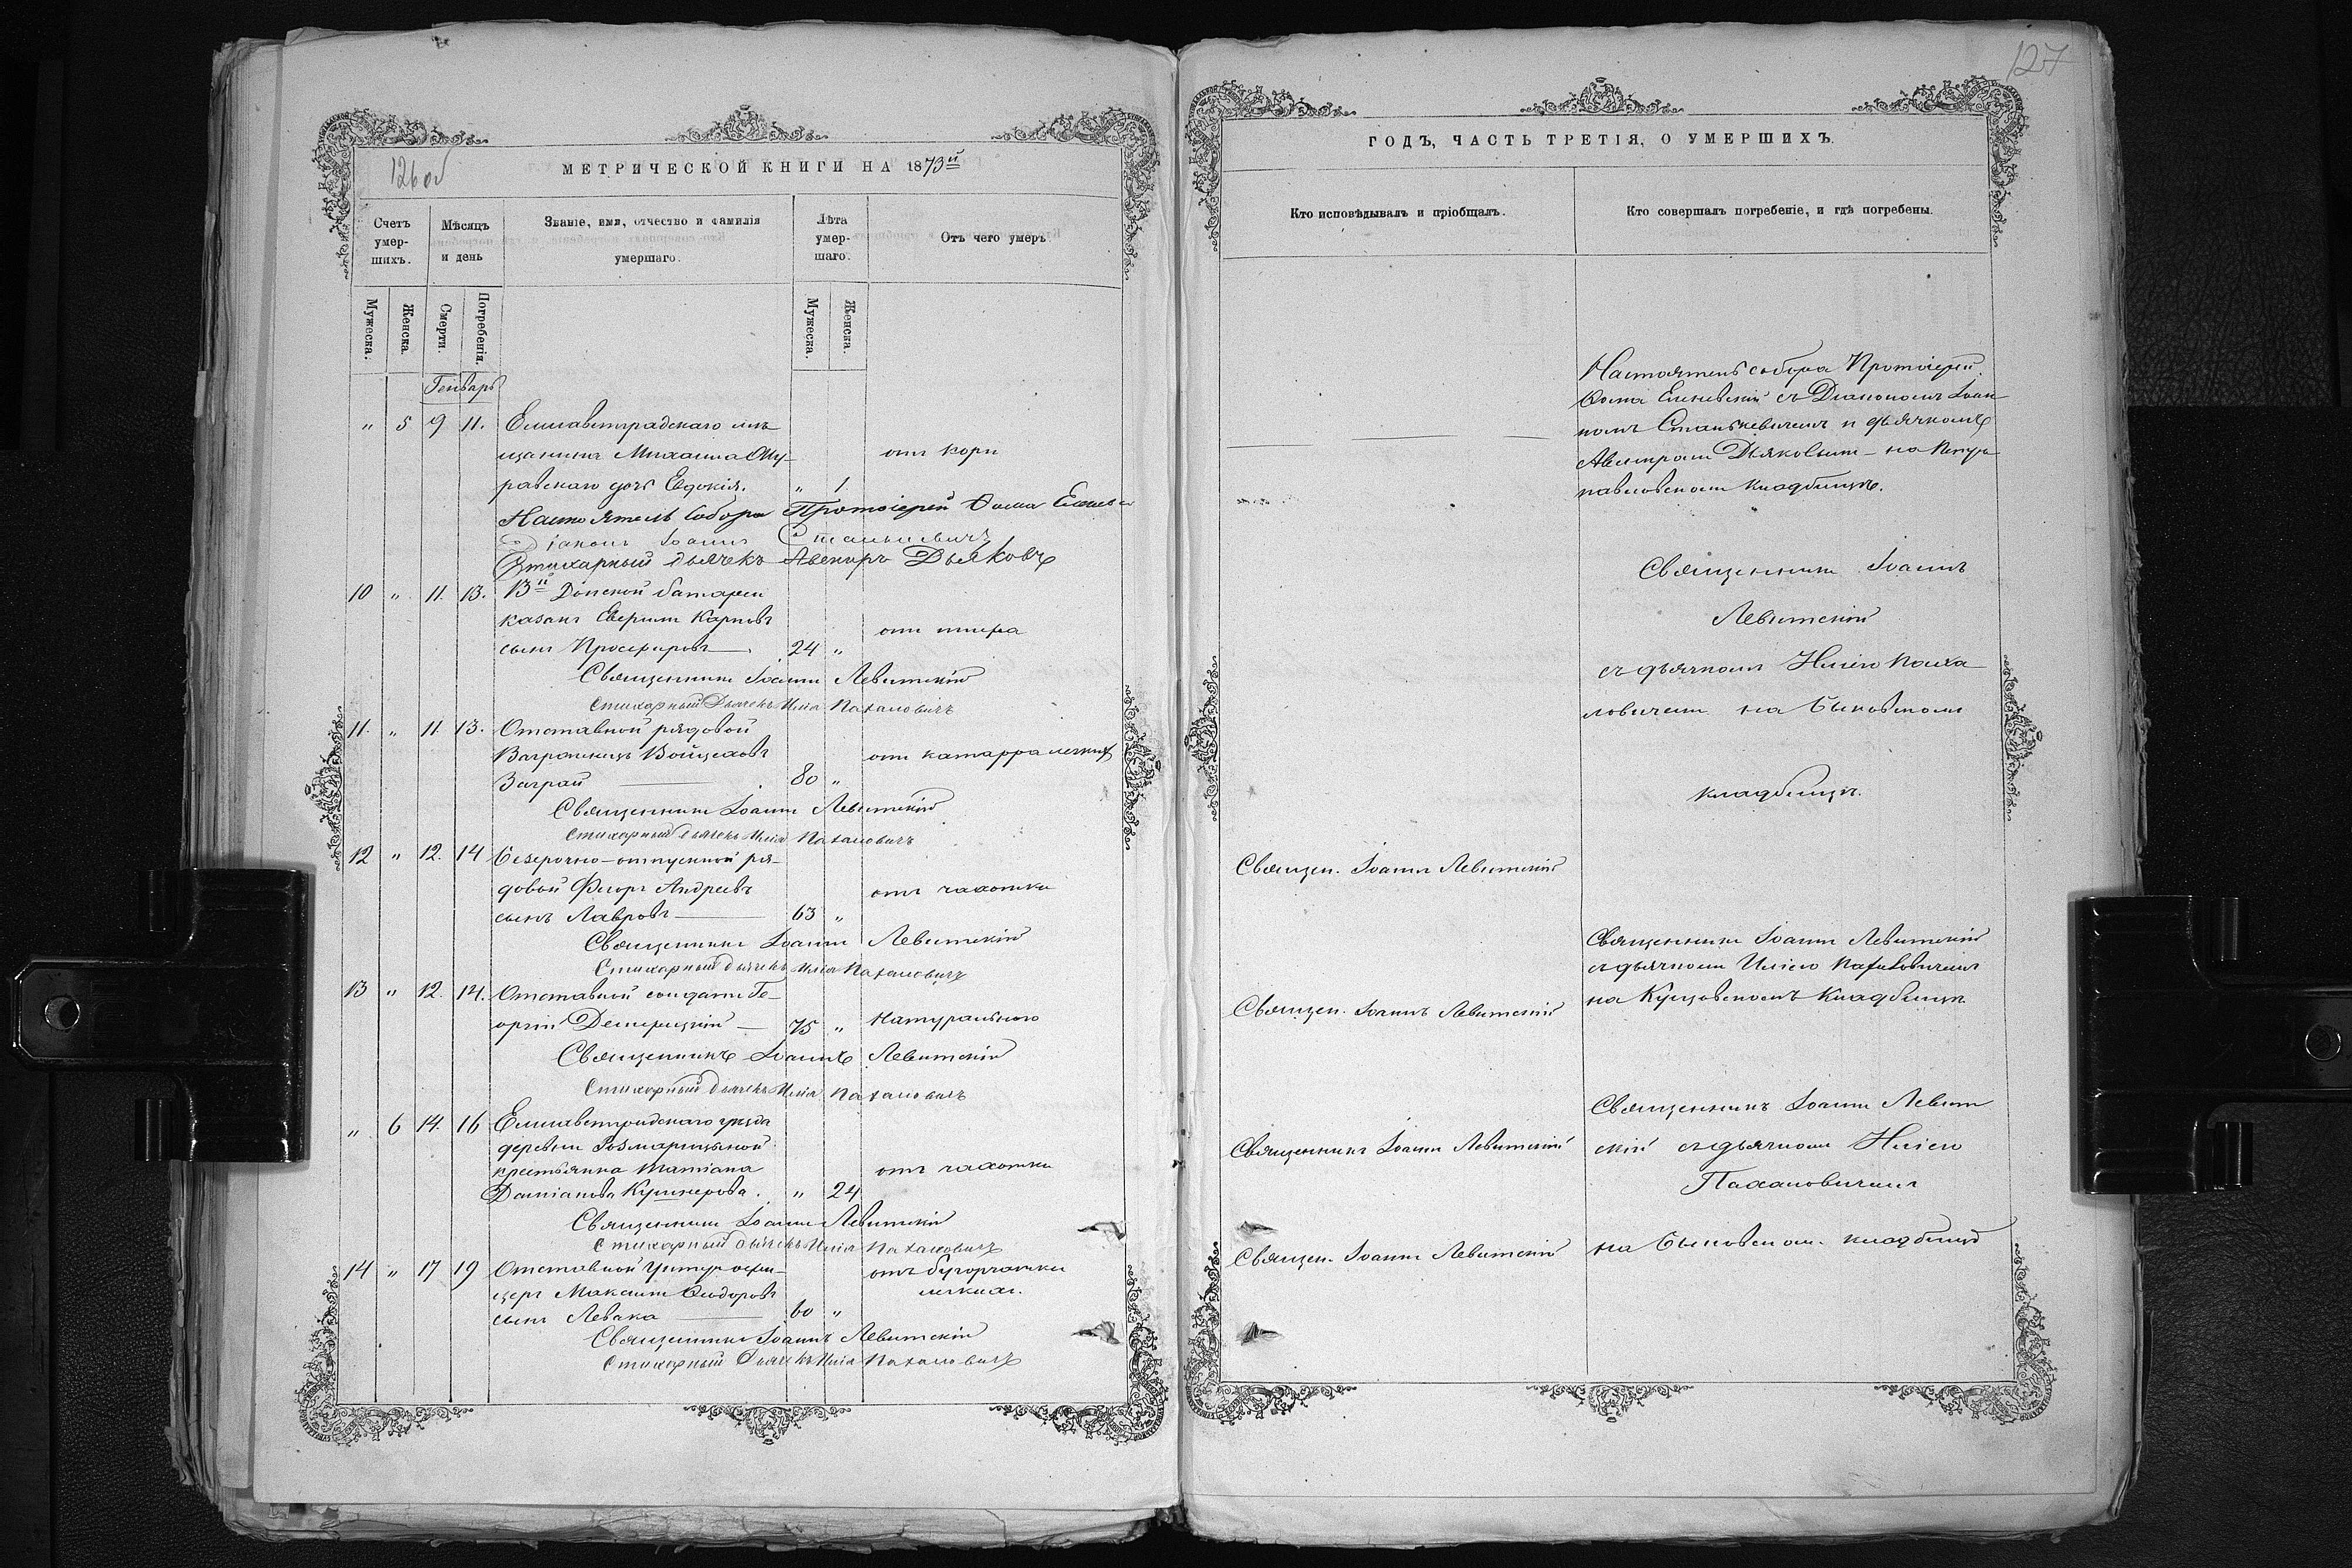 126 об
МЕТРИЧЕСКОЙ КНИГИ НА 1873й
Счетъ умер-шихъ.
Мѣсяцъ и день
Званіе, имя, отчество и фамилія умершаго.
Лѣта умер-шаго.
Отъ чего умеръ
Мужеска.
Женска.
Смерти.
Погребенія.
Мужеска.
Женска.
Генварь
" 5 9 11. Елисаветградскаго мѣ-
щанина Михаила
равскаго дочь Евдокія. " 1 отъ кори
Настоятель Собора Протоіерей Ѳома
Діаконъ Іоаннъ Станкевичъ
Стихарный дьячекъ Авениръ Дьяковъ
10 " 11. 13. Донской батареи
казакъ Карповъ
сынъ 24 " отъ тифа
Священникъ Іоаннъ Левитскій
Стихарный Дьячекъ Илія Пахаловичъ
11. " 11 13. Отставной рядовой
Войцеховъ
Заграй 80 " отъ катарра легкихъ
Священникъ Іоаннъ Левитскій
Стихарный дьячекъ Илія Пахаловичъ
12 " 12. 14 Безсрочно-отпускной ря-
довой Андреевъ
сынъ Лавровъ 63 " отъ чахотки
Священникъ Іоаннъ Левитскій
Стихарный дьячекъ Илія Пахаловичъ
13 " 12. 14. Отставной солдатъ Ге-
оргій 75 " Натурально
Священникъ Іоаннъ Левитскій
Стихарный дьячекъ Илія Пахаловичъ
" 6 14. 16 Елисаветградскаго уѣзда
деревни
крестьянка Татіана
Даміанова Кушнерова. " 24 отъ чахотки
Священникъ Іоаннъ Левитскій
Стихарный дьячекъ Илія Пахаловичъ
14 " 17 19 Отставной Унтеръ офи-
церъ Максимъ Ѳедоровъ
сынъ Левака 60 " отъ бугорчатки
легкихъ.
Священникъ Іоаннъ Левитскій
Стихарный Дьячекъ Илія Пахаловичъ
127
ГОДЪ, ЧАСТЬ ТРЕТІЯ, О УМЕРШИХЪ.
Кто исповѣдывалъ и пріобщалъ.
Кто совершалъ погребеніе, и гдѣ погребены.
Настоятель собора Протоіерей
Ѳома съ Діакономъ Іоан-
номъ Станкевичемъ и дьячкомъ
Авениромъ Дьяковымъ - на Петро-
павловскомъ кладбищѣ.
Священникъ Іоаннъ
Левитскій
съ дьячкомъ Иліею Паха-
ловичемъ на Быковскомъ
кладбищѣ.
Священ. Іоаннъ Левитскій
Священникъ Іоаннъ Левитскій
съ дьячкомъ Иліею Пахаловичемъ
на Кущовскомъ кладбищѣ
Священ. Іоаннъ Левитскій
Священникъ Іоаннъ Левит
скій съ дьячкомъ Иліею
Пахаловичемъ
на Быковском. кладбищѣ
Священникъ Іоаннъ Левитскій
Священ. Іоаннъ Левитскій